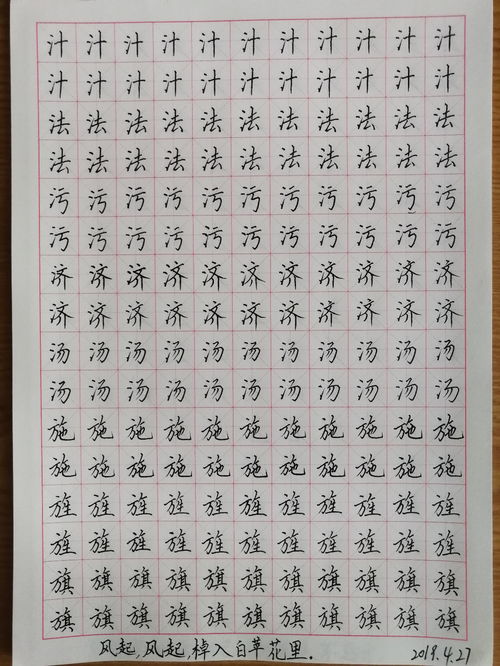 汁汁汁汁汁汁汁汁汁汁汁
汁汁汁汁汁汁汁汁汁汁汁
法法法法法法法法法法法
法法法法法法法法法法法
污污污污污污污污污污污
污污污污污污污污污污污
济济济济济济济济济济济
济济济济济济济济济济济
汤汤汤汤汤汤汤汤汤汤汤
汤汤汤汤汤汤汤汤汤汤汤
施施施施施施施施施施施
施施施施施施施施施施施
旌旌旌旌旌旌旌旌旌旌旌
旌旌旌旌旌旌旌旌旌旌旌
旗旗旗旗旗旗旗旗旗旗旗
旗旗旗旗旗旗旗旗旗旗旗
风起,风起,棹入白苹花里. 2018.4.27